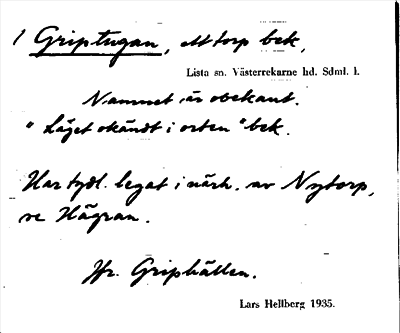 1 Griptugan, ett torp bek,
Lista sn. Västerrekarne hd. Sdml. l.
Namnet är obekant.
"Läget okändt i orten" bek.
Har tydl. legat i närh. av Nytorp,
se Hägran.
Jfr. Griphällen.
Lars Hellberg 1935.